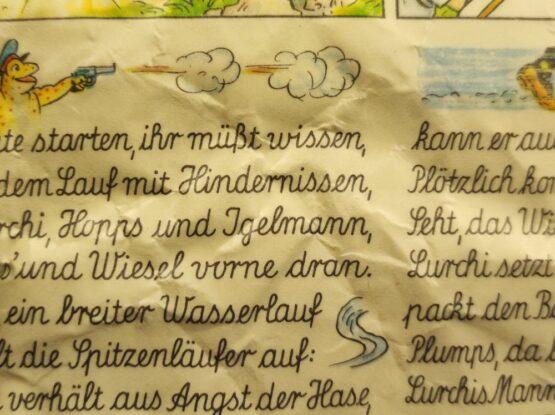 te starten, ihr müßt wissen,
dem Lauf mit Hindernissen,
rchi, Hopps und Igelmann,
s' und Wiesel vorne dran.
ein breiter Wasserlauf
lt die Spitzenläufer auf:
verhält aus Angst der Hase,
kann er au
Plötzlich kom
Seht, das Wi
Lurchi setzt
packt den Ba
Plumps, da l
Lurchis Mann